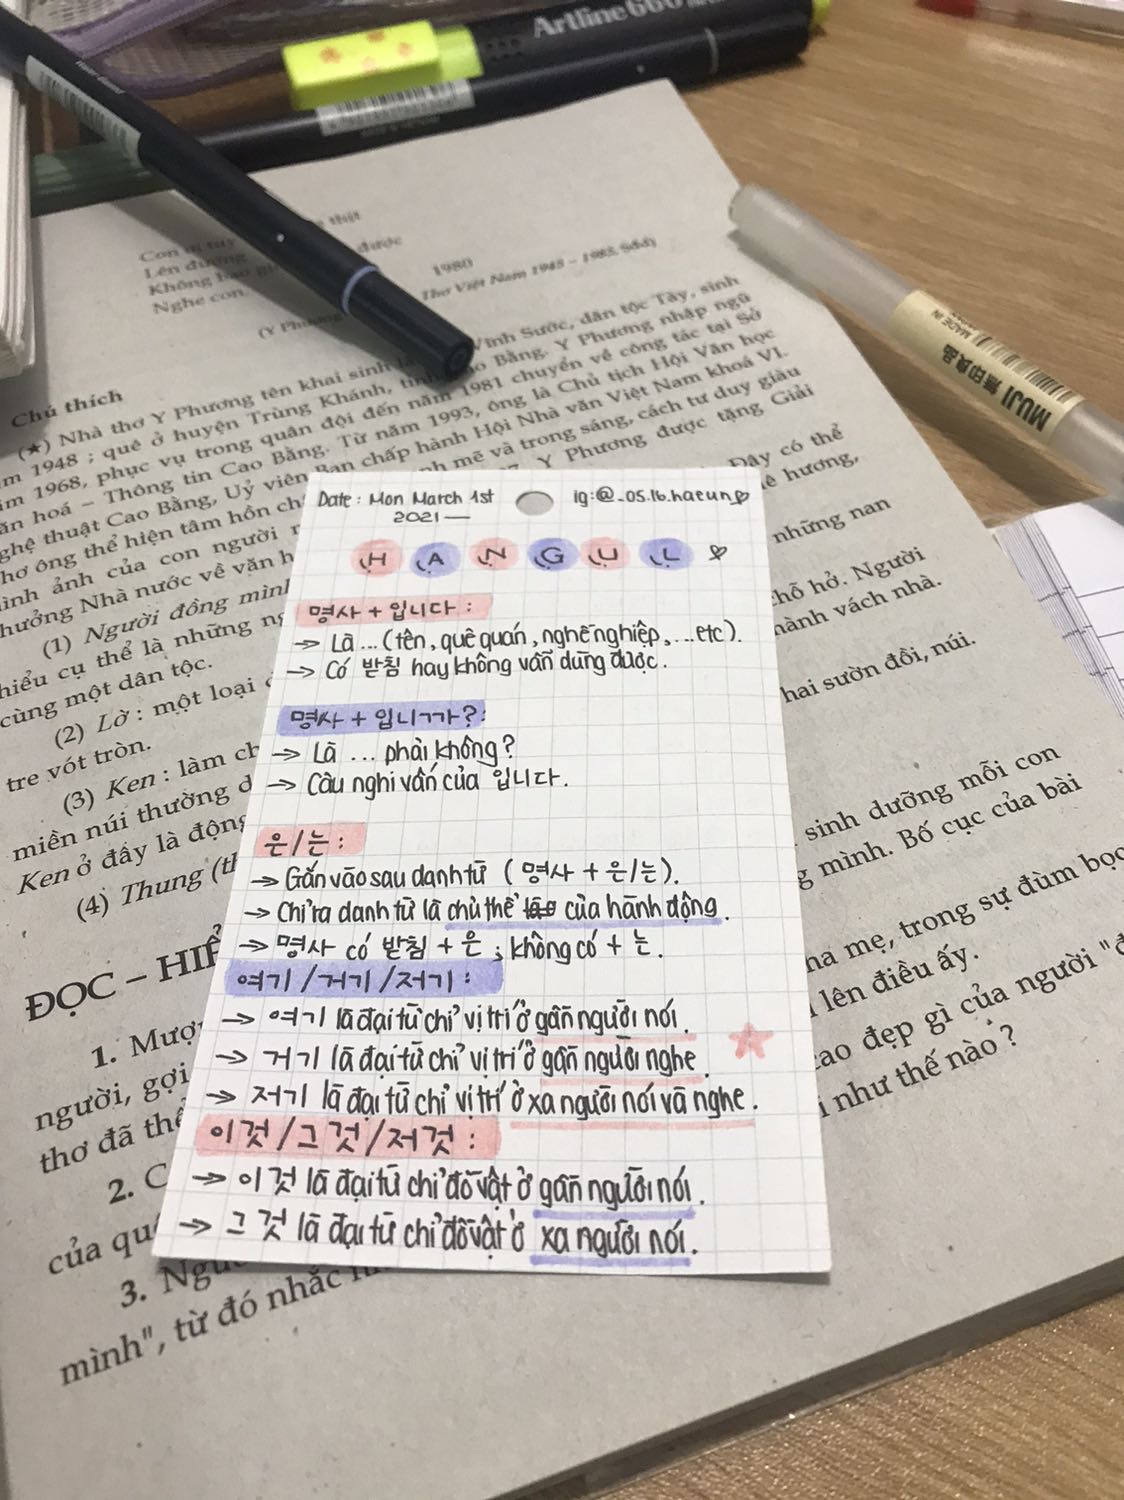 Artline 660
MUJI 無印良品
MADE IN
thịt
Con
Lên đường được
Không
Nghe con.
1980
Thơ Việt Nam 1945 – 1985, Sđd)
(Y Phương
Chú thích
(★) Nhà thơ Y Phương tên khai sinh Vĩnh Sước, dân tộc Tày, sinh
1948 ; quê ở huyện Trùng Khánh, Bằng. Y Phương nhập ngũ
1968, phục vụ trong quân đội đến năm 1981 chuyển về công tác tại Sở
hoá – Thông tin Cao Bằng. Từ năm 1993, ông là Chủ tịch Hội Văn học
thuật Cao Bằng, Uỷ viên Ban chấp hành Hội Nhà văn Việt Nam khoá VI.
ông thể hiện tâm hồn mẽ và trong sáng, cách tư duy giàu
ảnh của con người Y Phương được tặng Giải
thưởng Nhà nước về văn
(1) Người đồng Đây có thể
hiểu cụ thể là những hương,
cùng một dân tộc.
(2) Lờ : một loại những nan
tre vót tròn.
(3) Ken : làm hở. Người
miền núi thường vách nhà.
Ken ở đây là
(4) Thung hai sườn đồi, núi.
ĐỌC –
1. sinh dưỡng mỗi con
người, gợi mình. Bố cục của bài
thơ đã
2. mẹ, trong sự đùm bọc
của lên điều ấy.
3. đẹp gì của người
mình", từ đó nhắc như thế nào ?
Date : Mon March 1st
2021 —
ig:@_05.16.haeun
HANGUL
명사 + 입니다 :
→ Là ... (tên, quê quán, nghề nghiệp, ... etc).
→ Có 받침 hay không vẫn dùng được.
명사 + 입니까?:
→ Là ... phải không?
→ Câu nghi vấn của 입니다.
은/는 :
→ Gắn vào sau danh từ ( 명사 + 은/는).
→ Chỉ ra danh từ là chủ thể của hành động.
→ 명사 có 받침 + 은 ; không có + 는.
여기 /거기 /저기 :
→ 여기 là đại từ chỉ vị trí ở gần người nói.
→ 거기 là đại từ chỉ vị trí ở gần người nghe.
→ 저기 là đại từ chỉ vị trí ở xa người nói và nghe.
이것 /그것 /저것 :
→ 이것 là đại từ chỉ đồ vật ở gần người nói.
→ 그것 là đại từ chỉ đồ vật ở xa người nói.